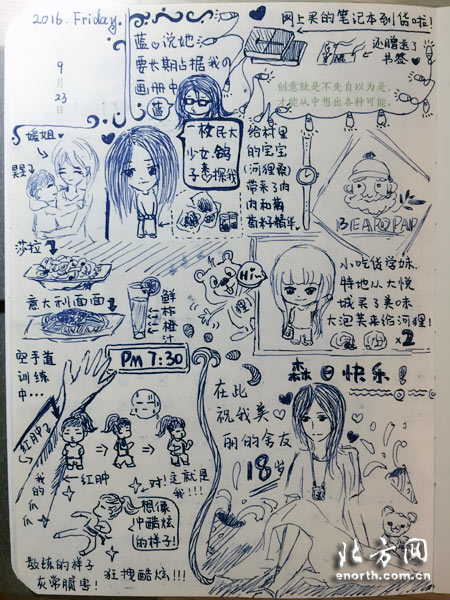 2016. Friday.
9
月
23
日
蓝说她
要长期占据我の
画册中
蓝
网上买的笔记本到货啦!
还赠送了
书签
创意就是不先自以为是,
才能从中想出各种可能。
媛姐
一枚民大
少女鸽
子表探我
给村里
的宝宝
(河狸桑)
带来了肉
肉和
莎拉
意大利面面
鲜
榨
橙
汁
Hi~
狸
BEARDPAP
小吃货学妹
特地从大悦
城买了美味
大泡芙来给河狸!
×2
空手道
训练
中…
PM 7:30
红肿
我
的
爪
爪
对!这就是
我!!!
想像
中酷炫
的样子!
教练的样子
灰常腻害!
狂拽酷炫!!!
森日快乐!
在此
祝我美
丽的舍友
18岁
北方网
enorth.com.cn